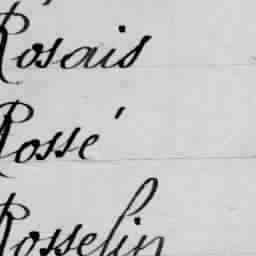 Rosais
Rossé
Rosselin